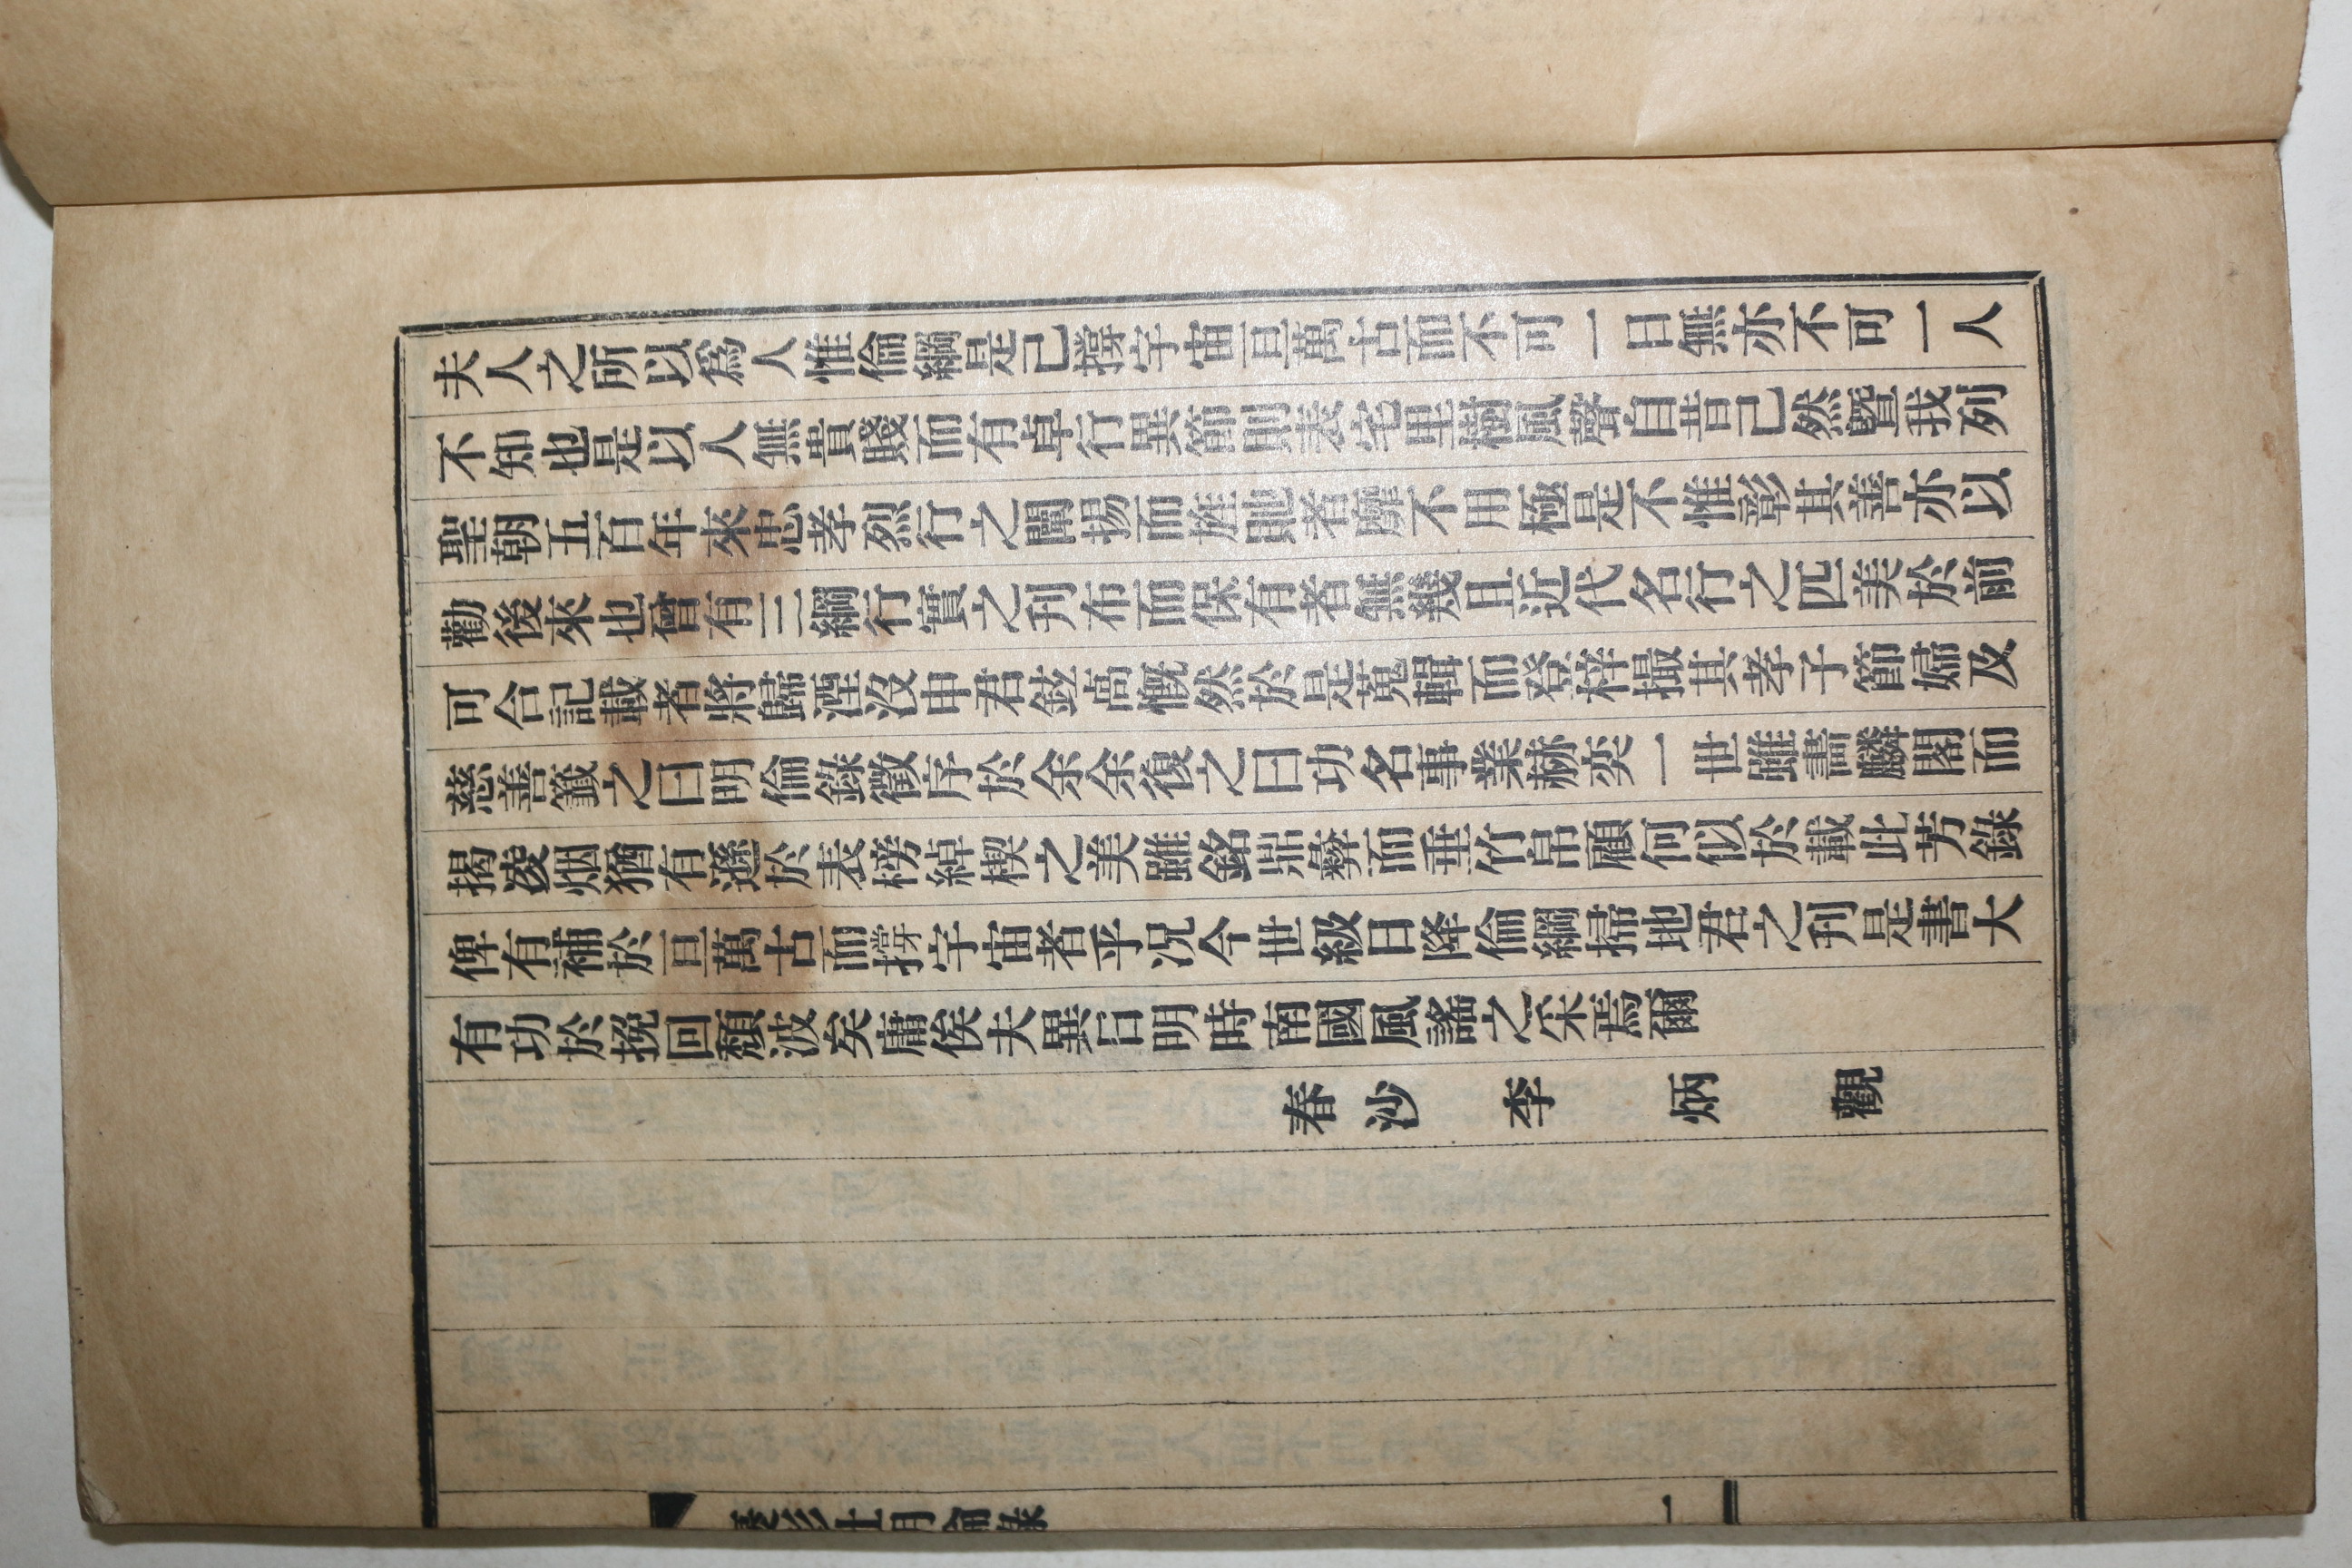 夫人之所以爲人惟倫綱是已撐宇宙亘萬古而不可一日無亦不可一人
不知也是以人無貴賤而有卓行異節則表宅里樹風聲自昔已然曁我列
聖朝五百年來忠孝烈行之闡揚而旌貤者靡不用極是不惟彰其善亦以
勸後來也曾有三綱行實之刊布而保有者無幾且近代名行之匹美於前
可合記載者將歸湮沒申君鉉卨慨然於是蒐輯而登梓撮其孝子節婦及
慈善籤之曰明倫錄徵序於余余復之曰功名事業赫奕一世雖畵麟閣而
揭凌烟猶有遜於表榜綽楔之美雖銘鼎彝而垂竹帛顧何似於載此芳錄
俾有補於亘萬古而撐宇宙者乎况今世級日降倫綱掃地君之刊是書大
有功於挽回頹波矣庸俟夫異日明時南國風謠之采焉爾
春沙 李炳觀
褒彰社明倫錄
一